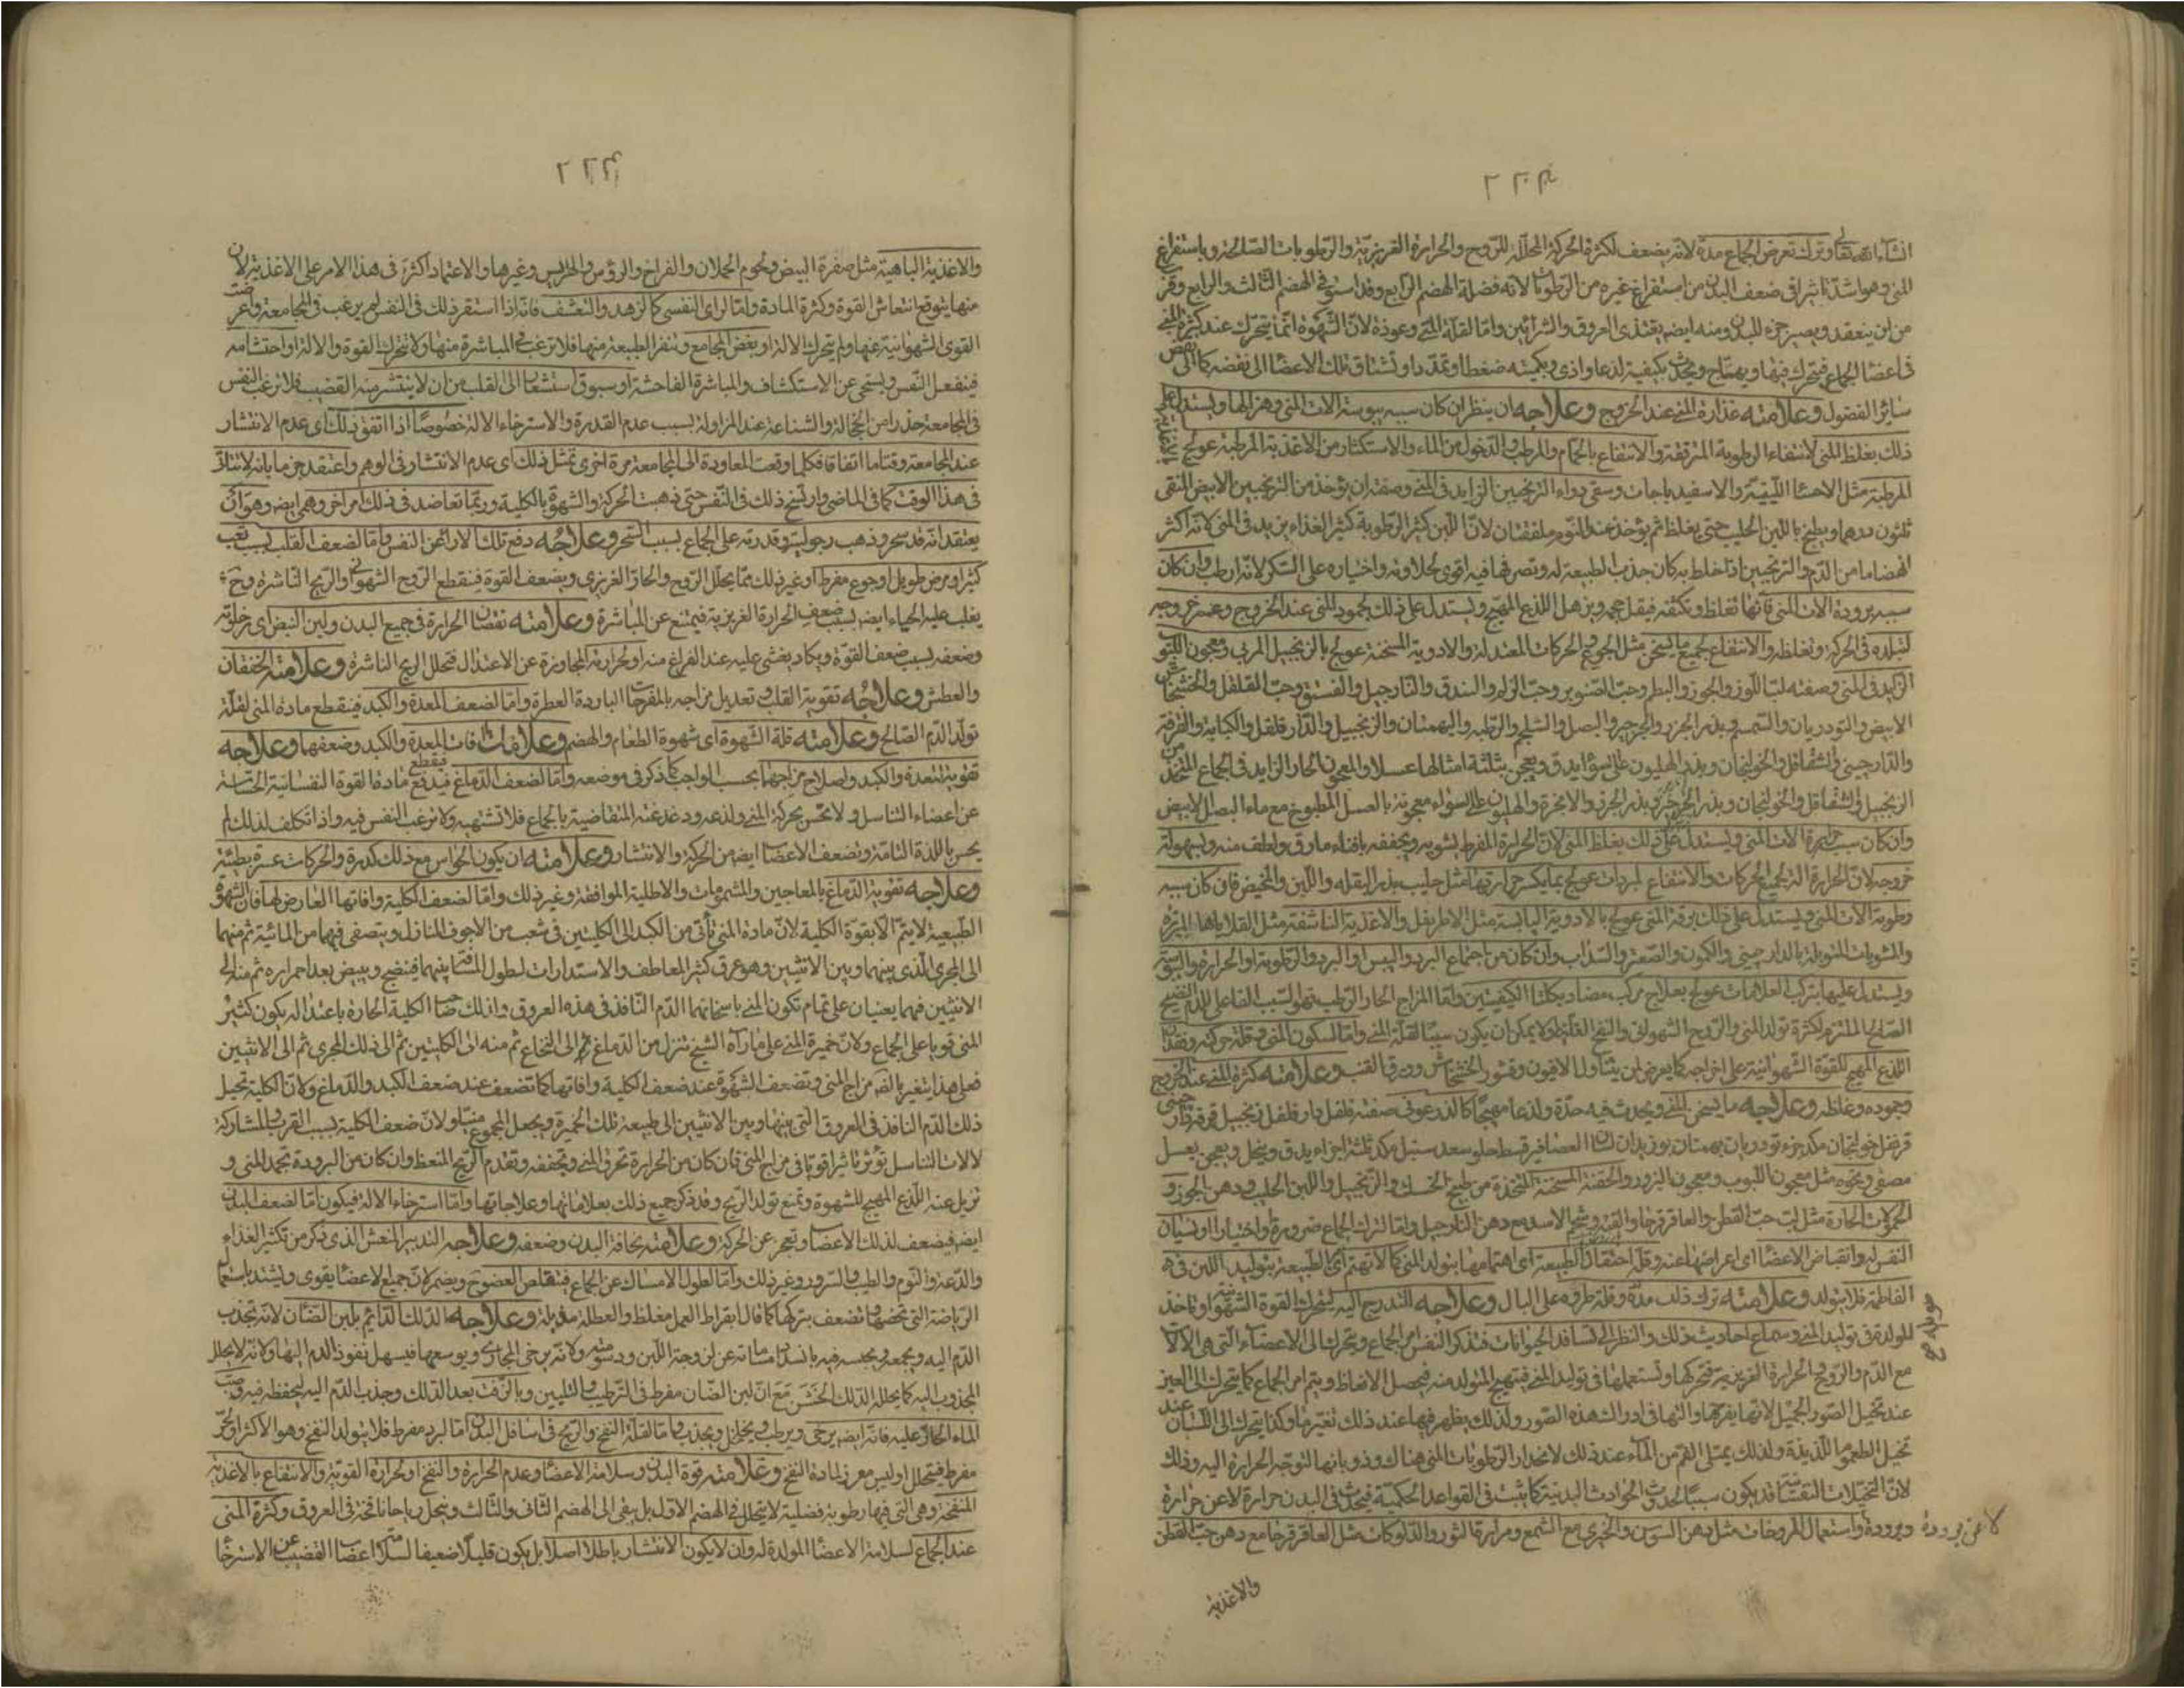 انشاء الله تعالى وترك تعرض الجماع مدة لانه يضعف لكثرة الحركة المحللة للروح والحرارة الغريزية والرطوبات الصالحة وباستفراغ
المنى وهو اشد تاثيرا فى ضعف البدن من استفراغ غيره من الرطوبات لانه فضلة الهضم الرابع وقد استوفى الهضم الثالث والرابع وقرب
من ان ينعقد ويصير جزء للبدن ومنه ايضا يغتذى العروق والشرائين واما لقلة المنى وعوذه لان الشهوة انما يتحرك عند كثرة المنى
فى اعضا الجماع فيتحرك فيها ويهتاج ويحدث بكيفيته لذعا واذى وبكميته ضغطا وتمددا وتشتاق تلك الاعضا الى نفضه كما الى نفض
سائر الفضول وعلامته غذارة المنى عند الخروج وعلاجه ان ينظر ان كان سببه يبوسة الات المنى وهزالها ويستدل على
ذلك بغلظ المنى لانتفاء الرطوبة المرققة والانتفاع بالحمام والمرطب والدخول من الماء والاستكثار من الاغذية المرطبة عولج بالاغذية
المرطبة مثل الاحشا اللينة والاسفيدباجات وسقى دواء الترنجبين الزايد فى المنى وصفته ان يؤخذ من الترنجبين الابيض النقى
ثلثون درهما ويطبخ باللبن الحليب حتى يغلظ ثم يؤخذ عند النوم ملعقتان لان اللبن كثير الرطوبة كثير الغذاء يزيد فى المنى لانه اكثر
انهضاما من الدم والترنجبين اذا خلط به كان جذب الطبيعة له وتصرفها فيه اقوى لحلاوته واختياره على السكر لانه ارطب وان كان
سببه برودة الات المنى فانها تغلظ وتكثفه فيقل حجمه ويزهل اللذع المهيج ويستدل على ذلك بجمود المنى عند الخروج وعسر خروجه
لتبلده فى الحركة وتغلظه والانتفاع بجميع ما يسخن مثل الجوع والحركات المعتدلة والادوية المسخنة عولج بالزنجبيل المربى ومعجون اللبوب
الزايد فى المنى وصفته لب اللوز والجوز والبطم وحب الصنوبر وحب الزلم والبندق والنارجيل والفستق وحب القلقل والخشخاش
الابيض والتودريان والسمسم وبذر الجزر والجرجير والبصل والشلجم والرطبه والبهمنان والزنجبيل والدار فلفل والكبابة والقرفة
والدارچينى والشقاقل والخولنجان وبذر الهليون على السواء يدق ويعجن بثلثة امثالها عسلا والمعجون الحار الزايد فى الجماع المتخذ من
الزنجبيل والشقاقل والخولنجان وبذر الجرجير وبذر الجزر والانجرة والهليون على السواء معجونة بالعسل المطبوخ مع ماء البصل الابيض
وان كان سببه حرارة الات المنى ويستدل على ذلك بغلظ المنى لان الحرارة المفرط يشويه ويجففه بافناء ما رق ولطف منه وبسهولة
خروجه لان الحرارة الى جميع الحركات والانتفاع بالمبردات عولج بما يكسر حرارتها مثل حليب بذر البقله واللبن والمخيض فان كان سببه
رطوبة الات المنى ويستدل على ذلك برقة المنى عولج بالادوية اليابسة مثل الاطريفل والاغذية الناشفة مثل القلايا المبزره
والمشويات المتوبلة بالدارچينى والكمون والصعتر والسذاب وان كان من اجتماع البرد واليبس او البرد والرطوبة او الحرارة واليبوسة
ويستدل عليها بتركب العلامات عولج بعلاج مركب مضاد بكلتا الكيفيتين واما المزاج الحار الرطب فهو السبب الفاعلى للدم النضيج
الصالح الملتزم لكثرة تولد المنى والروح الشهوانى والنفخ الغليظ ولا يمكن ان يكون سببا لقلة المنى واما لسكون المنى وقلة حركته وفقدان
اللذع المهيج للقوة الشهوانية على اخراجه كما يعرض لمن يتناول الافيون وقشور الخشخاش وورق القنب وعلامته كثرة المنى عند الخروج
وجموده وغلظه وعلاجه ما يسخن المنى ويحدث فيه حدة ولذعا مهيجا كالذرعونى صفته فلفل دار فلفل زنجبيل قرفة دارچينى
قرنفل خولنجان مكد جزء تودريان بهمنان بوزيدان لسان العصافير قسط حلو سعد سنبل مكد ثلثة اجزاء يدق وينخل ويعجن بعسل
مصفى ونحوه مثل معجون اللبوب ومعجون البزور والحقنة المسخنة المتخذة من طبيخ الحسك والزنجبيل واللبن الحليب ودهن الجوز و
الحمولات الحارة مثل لب حب القطن والعاقرقرحا والقنه وشحم الاسد مع دهن النارجيل واما لترك الجماع ضرورة واختيارا ونسيان
النفس له وانقباض الاعضا اى اعراضها عنه وقلة احتفال الطبيعة اى اهتمامها بتولد المنى كما لا تهتم اى الطبيعة بتوليد اللبن فى
الفاطمة فلا يتولد وعلامته ترك ذلك مدة وقلة طروه على البال وعلاجه التدرج اليه ليتحرك القوة الشهوانية وتاخذ
المولدة فى توليد المنى وسماع احاديث ذلك والنظر الى تسافد الحيوانات فتذكر النفس امر الجماع ويتحرك الى الاعضاء التى هى الالات
مع الدم والروح والحرارة الغريزية فتحركها وتستعملها فى توليد المنى فتهيج المتولد منه فيحصل الانعاظ ويتم امر الجماع كما يتحرك الى العين
عند تخيل الصور الجميل لانها يفرحها والتها فى ادراك هذه الصور ولذلك يظهر فيها عند ذلك تغير ما وكذا يتحرك الى اللسان عند
تخيل الطعوم اللذيذة ولذلك يمتلى الفم من الماء عند ذلك لانحدار الرطوبات المنى هناك وذوبانها لتوجه الحرارة اليه وذلك
لان التخيلات النفسانية قد يكون سببا لحدوث الحوادث البدنية كما ثبت فى القواعد الحكمية فيحدث فى البدن حرارة لا عن حرارة
وبرودة لا عن برودة واستعمال المروخات مثل دهن السوسن والخيرى مع الشمع ومرارة الثور والدلوكات مثل العاقرقرحا مع دهن حب القطن
والاغذية
والاغذية الباهية مثل صفرة البيض ولحوم الحملان والفراخ والرؤس والهرايس وغيرها والاعتماد اكثره فى هذا الامر على الاغذية لان
منها يتوقع انتعاش القوة وكثرة المادة واما لراى النفسى كالزهد والتعشف فانه اذا استقر ذلك فى النفس لم يرغب فى المجامعة واعرضت
القوى الشهوانية عنها ولم يتحرك الالة او بغض المجامع وتنفر الطبيعة منها فلا ترغب فى المباشرة منها ولا تتحرك القوة والالة او احتشامه
فينفعل النفس ويستحى عن الاستكشاف والمباشرة الفاحشة او سبوق استشعار الى القلب من ان لا ينتشر منه القضيب فلا ترغب النفس
فى المجامعة حذرا من الخجالة والشناعة عند المزاولة بسبب عدم القدرة والاسترخاء الالة خصوصا اذا اتفق ذلك اى عدم الانتشار
عند المجامعة وقتا ما اتفاقا فكلما وقعت المعاودة الى المجامعة مرة اخرى تمثل ذلك اى عدم الانتشار فى الوهم واعتقد جزما بانه لا يتاتى
فى هذا الوقت كما فى الماضى وارتسخ ذلك فى النفس حتى ذهبت الحركة والشهوة بالكلية وربما تعاضد فى ذلك امر اخر وهمى ايضا وهو ان
يعتقد انه قد سحر وذهب رجوليته وقدرته على الجماع بسبب السحر وعلاجه دفع تلك الاراء عن النفس واما لضعف القلب بسبب تعب
كثير او مرض طويل او جوع مفرط او غير ذلك مما يحلل الروح والحار الغريزى ويضعف القوة فينقطع الروح الشهوانى والريح الناشرة وح
يغلب عليه الحياء ايضا بسبب ضعف الحرارة الغريزية فيمتنع عن المباشرة وعلامته نقصان الحرارة فى جميع البدن ولين النبض اى رخاوته
وضعفه بسبب ضعف القوة ويكاد يغشى عليه عند الفراغ منه او لحرارته المجاوزة عن الاعتدال فتحلل الريح الناشرة وعلامته الخفقان
والعطش وعلاجه تقوية القلب وتعديل مزاجه بالمفرحات الباردة العطرة واما لضعف المعدة والكبد فينقطع مادة المنى لقلة
تولد الدم الصالح وعلامته قلة الشهوة اى شهوة الطعام والهضم وعلامات افات المعدة والكبد وضعفها وعلاجه
تقوية المعدة والكبد واصلاح مزاجهما بحسب الواجب كما ذكر فى موضعه واما لضعف الدماغ فينقطع مادة القوة النفسانية الحساسة
عن اعضاء التناسل ولا تحس بحركة المنى ولذعه ودغدغته المتقاضية بالجماع فلا تشتهيه ولا ترغب النفس فيه واذا تكلف لذلك لم
يحس باللذة التامة وتضعف الاعضا ايضا من الحركة والانتشار وعلامته ان يكون الحواس مع ذلك كدرة والحركات عسرة بطيئة
وعلاجه تقوية الدماغ بالمعاجين والمشمومات والاطلية الموافقة وغير ذلك واما لضعف الكلية وافاتها العارض لها فان الشهوة
الطبيعية لا يتم الا بقوة الكلية لان مادة المنى تأتى من الكبد الى الكليتين فى شعب من الاجوف النازل ويتصفى فيهما من المائية ثم منهما
الى المجرى الذى بينهما وبين الانثيين وهو عرق كثير المعاطف والاستدارات ليطول المسافة بينهما فينضج ويبيض بعد احمراره ثم منه الى
الانثيين فهما يعينان على تمام تكون المنى باسخانهما الدم النافذ فى هذه العروق ولذلك صاحب الكلية الحارة باعتدال يكون كثير
المنى قويا على الجماع ولان خميرة المنى على ما رآه الشيخ تنزل من الدماغ الى النخاع ثم منه الى الكليتين ثم الى ذلك المجرى ثم الى الانثيين
فعلى هذا يتغير بالضرورة مزاج المنى وتضعف الشهوة عند ضعف الكلية وافاتها كما تضعف عند ضعف الكبد والدماغ ولان الكلية تحيل
ذلك الدم النافذ فى العروق التى بينها وبين الانثيين الى طبيعة تلك الخميرة ويجعل المجموع منيا ولان ضعف الكلية بسبب القرب والمشاركة
لالات التناسل تؤثر تاثيرا قويا فى مزاج المنى فان كان من الحرارة تحرق المنى وتجففه وتقدم الريح المنعظ وان كان من البرودة تجمد المنى و
تزيل عنه اللذع المهيج للشهوة وتمنع تولد الريح وقد ذكر جميع ذلك بعلاماتها وعلاجاتها واما استرخاء الالة فيكون اما لضعف البدن
ايضا فيضعف لذلك الاعضا وتعجز عن الحركة وعلامته نحافة البدن وضعفه وعلاجه التدبير المنعش الذى ذكر من تكثير الغذاء
والدعة والنوم والطيب والسرور وغير ذلك واما لطول الامساك عن الجماع فيتقلص العضو ح ويضمر لان جميع الاعضا يقوى ويشتد باستعمال
الرياضة التى تخصها وتضعف بتركها كما قال ابقراط العمل مغلظ والعطلة مذيلة وعلاجه الدلك الدائم بلبن الضأن لانه تجذب
الدم اليه ويجمعه ويحبسه فيه بانسداد مساماته عن لزوجة اللبن ودسومته ولانه يرخى المجارى ويوسعها فيسهل نفوذ الدم اليها ولانه لا يحلل
المجذوب اليه كما يحلله الدلك الخشن مع ان لبن الضان مفرط فى الترطيب والتليين وبالزفت بعد الدلك وجذب الدم اليه ليحفظه فيه وصب
الماء الحار عليه فانه ايضا يرخى ويرطب ويخلخل ويجذب واما لقلة النفخ والريح فى اسافل البدن اما لبرد مفرط فلا يتولد النفخ وهو الاكثر او لحر
مفرط فيتحلل او ليس معوز لمادة النفخ وعلامته قوة البدن وسلامة الاعضا وعدم الحرارة والنفخ او لحرارة القوية والانتفاع بالاغذية
المنفخة وهى التى فيها رطوبة فضلية لا يتحلل فى الهضم الاول بل يبقى الى الهضم الثانى والثالث ويتحلل رياحا نافخة فى العروق وكثرة المنى
عند الجماع لسلامة الاعضا المولدة له وان لا يكون الانتشار باطلا اصلا بل يكون قليلا ضعيفا لسلامة اعضا القضيب عن الاسترخا